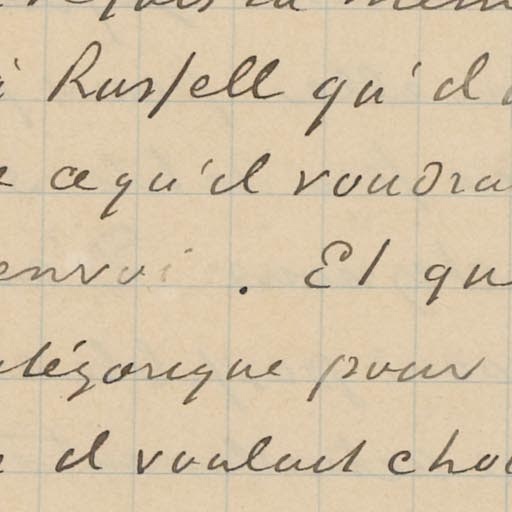 à Russell qu'il
ce qu'il voudra
envoi. Et qu
atégorique pour
il voulait cho